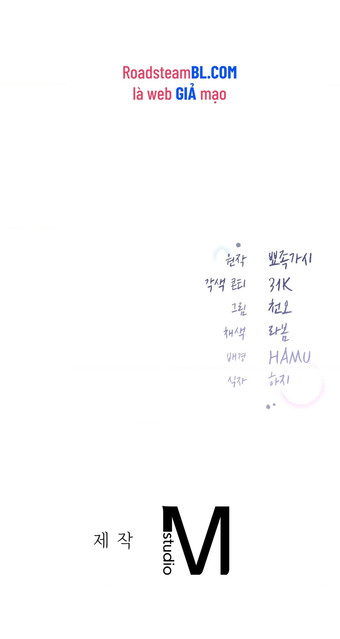 RoadsteamBL.COM
là web GIẢ mạo
원작 뾰족가시
각색 콘티 31K
그림 천오
채색 라봄
배경 HAMU
식자 하지
제작 M studio